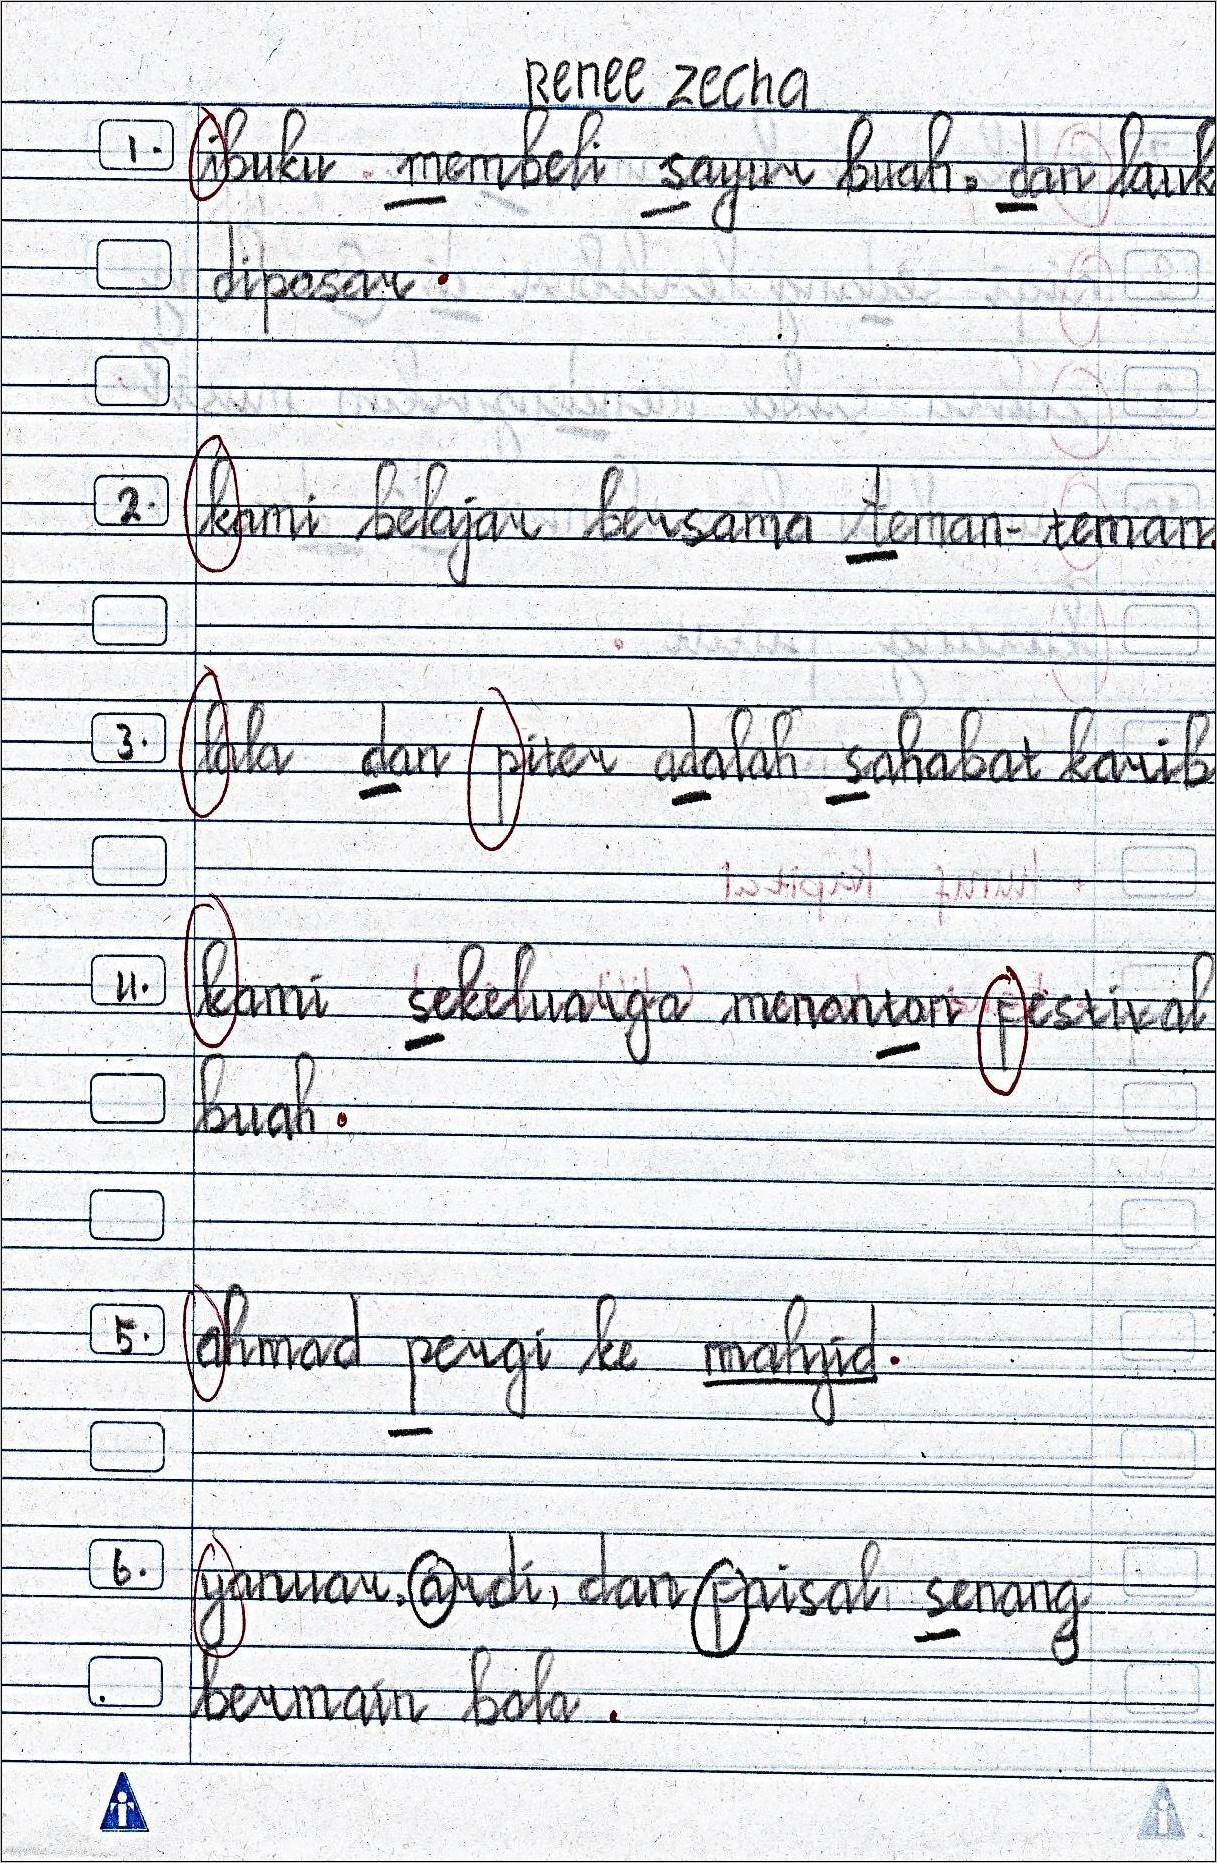 Renee zecha
1. ibuku membeli sayur buah, dan lauk
dipasar.
2. kami belajar bersama teman-teman.
3. lala dan piter adalah sahabat karib
4. kami sekeluarga menonton festival
buah.
5. ahmad pergi ke
6. yanuar, ardi, dan faisal senang
bermain bola.
huruf kapital